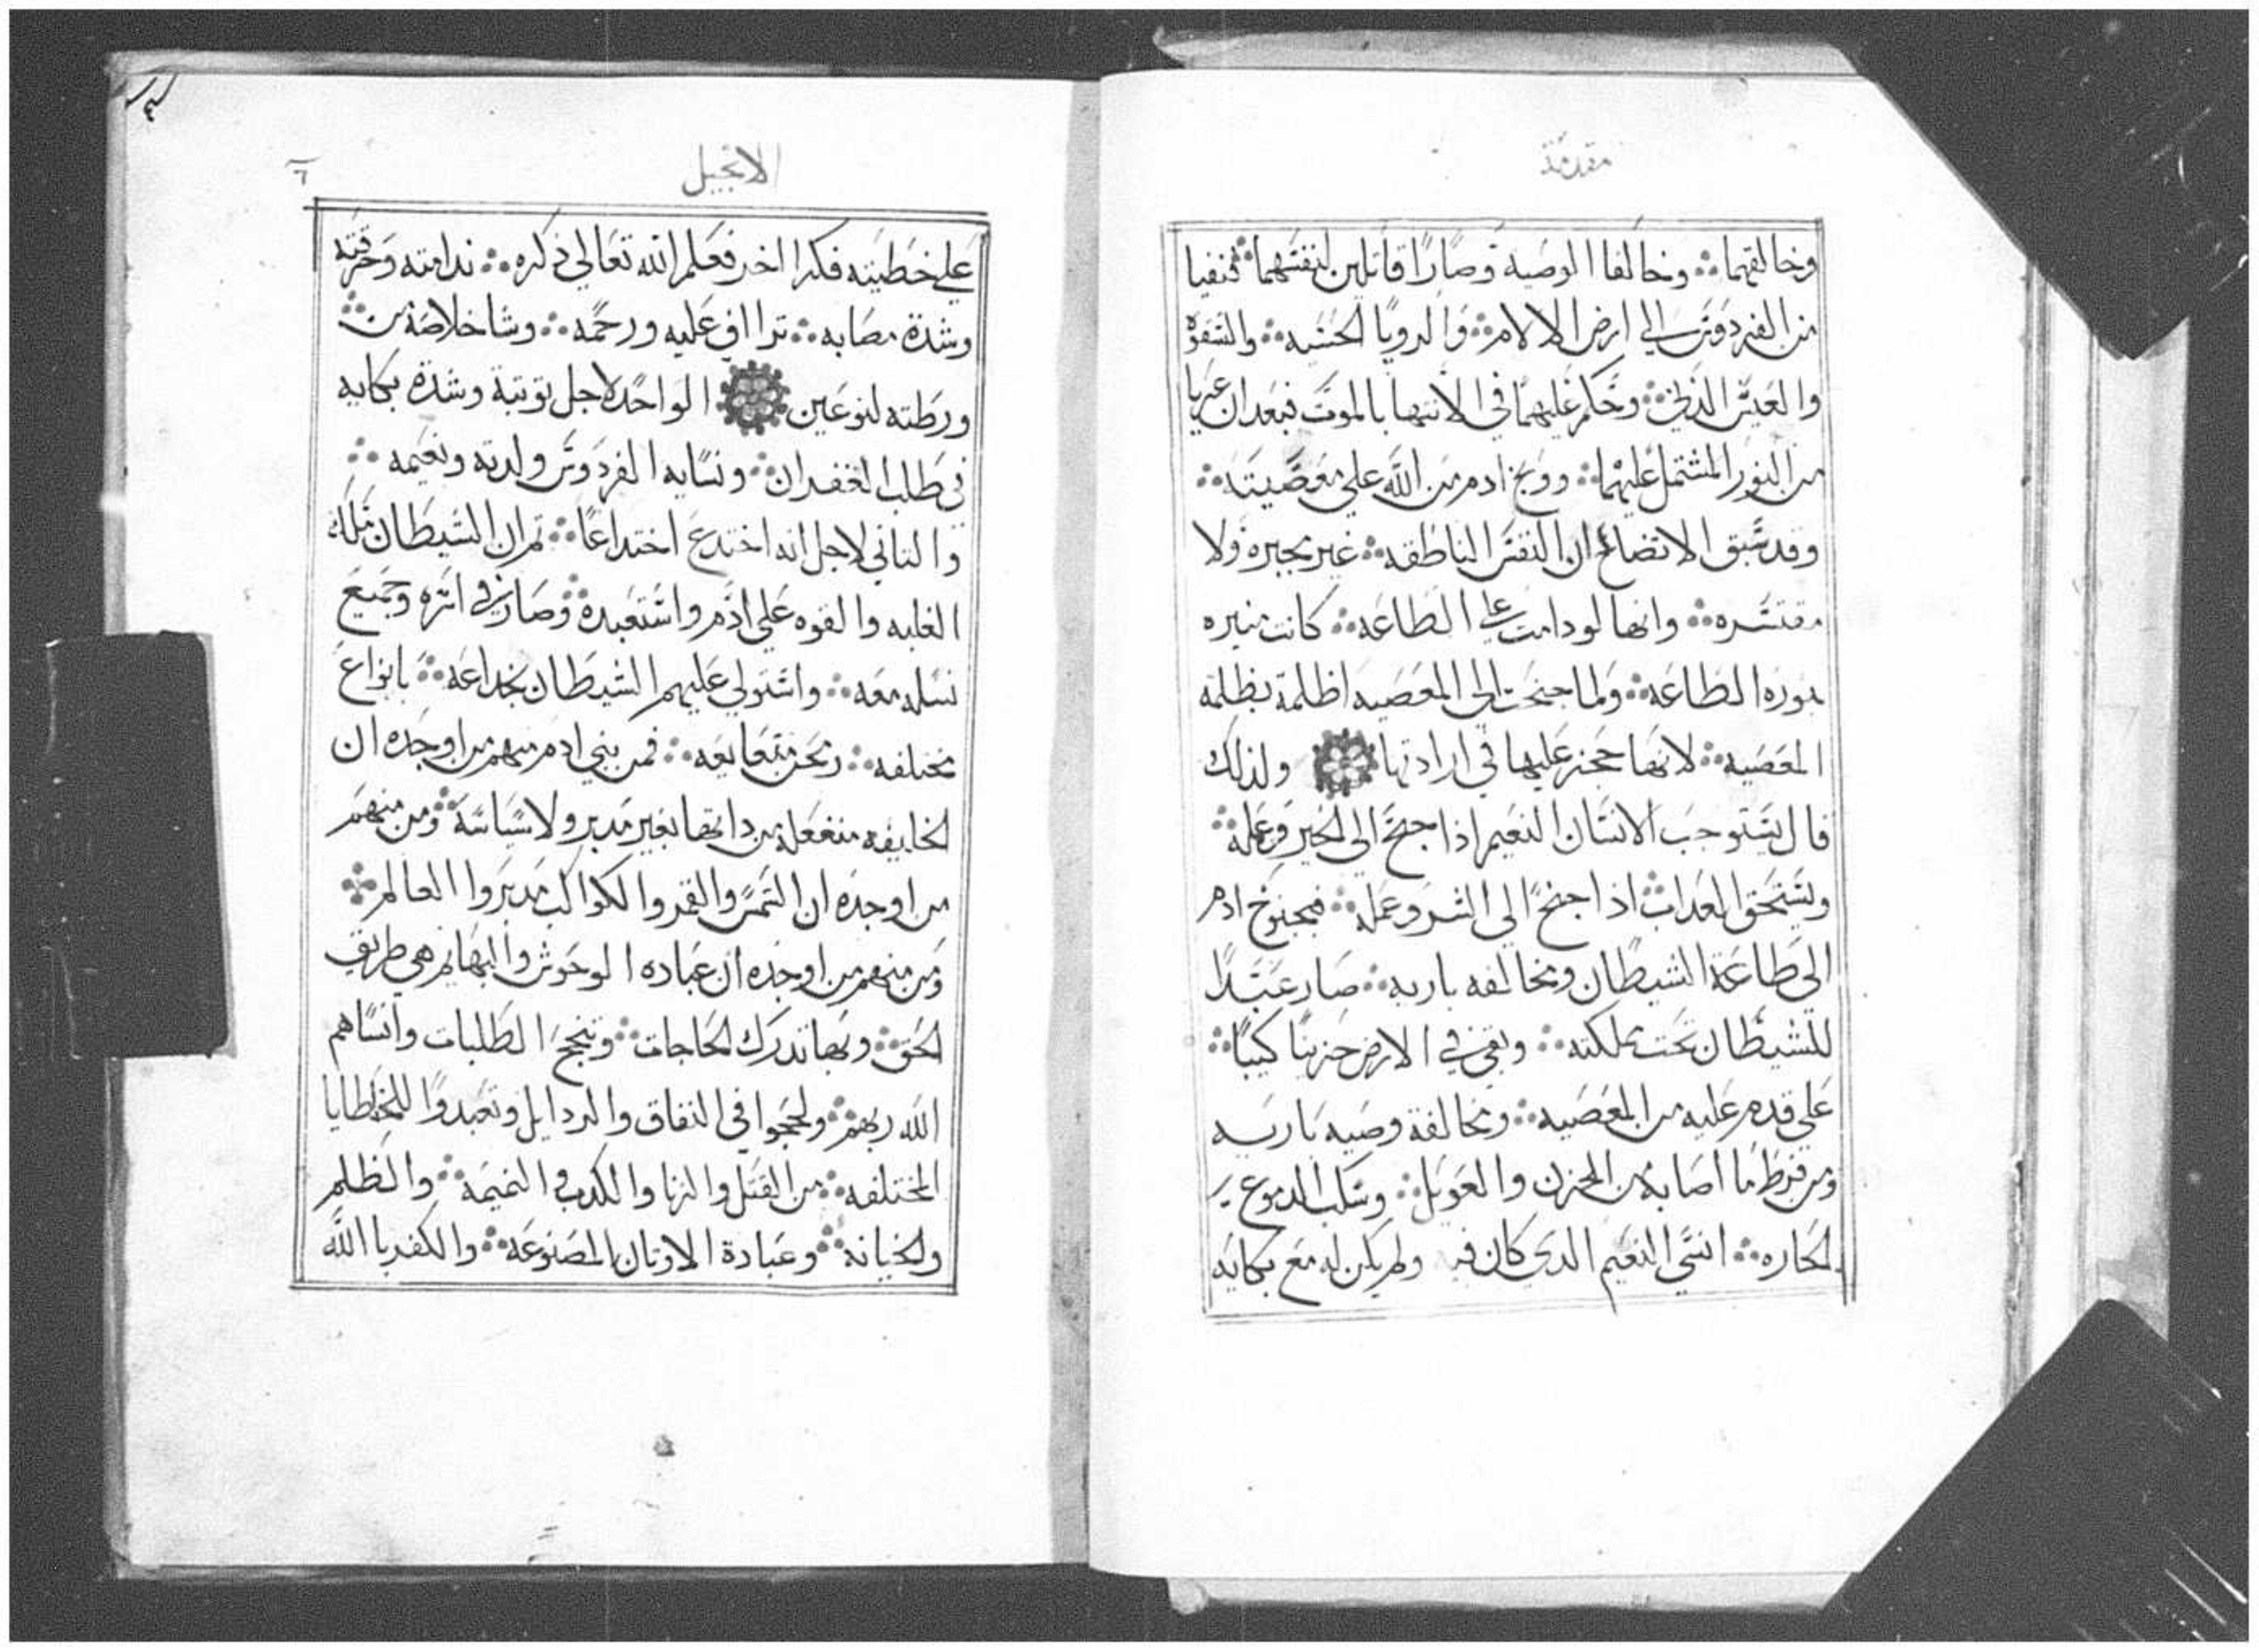 مقدمة
وخالقهما ܀ وخالفا الوصية وصارا قاتلين لنفسهما ܀ فنفيا
من الفردوس الي ارض الالام ܀ والرويا الحسيه ܀ والشقوه
والعيش الدني ܀ وحكم عليهما في الانتها بالموت فبعد ان عريا
من النور المشتمل عليهما ܀ ووبخ ادم من الله علي معصيته ܀
وقد سبق الاتضاح ان النفس الناطقه ܀ غير مجبره ولا
مقتسره ܀ وانها لو دامت علي الطاعه ܀ كانت منيره
بنوره الطاعه ܀ ولما جنحت الي المعصيه اظلمة بظلمة
المعصيه ܀ لانها حجز عليها في ارادتها ولذلك
قال يستوجب الانسان النعيم اذا جنح الي الخير وعمله ܀
ويستحق العداب ܀ اذا جنح الي الشر وعمله ܀ فبجنوح ادم
الي طاعة الشيطان ومخالفه باريه ܀ صار عبدًا
للشيطان تحت مملكته ܀ وبقي في الارض حزينا كيبا ܀
علي قدم عليه من المعصيه ܀ ومخالفة وصيه باريه
ومن فرط ما اصابه من الحزن والعويل ܀ وسكب الدموع
الحاره ܀ انسي النعيم الدي كان فيه ولم يكن له مع بكايه
الانجيل
٦
علي خطيته فكرا اخر فعلم الله تعالي ذكره ܀ ندامته وحرقته
وشدة مصابه ܀ تراف عليه ورحمه ܀ وشا خلاصه من ܀
ورطته لنوعين الواحد لاجل توبتة وشدة بكايه
في طلب الغفران ܀ ونسايه الفردوس ولدته ونعيمه ܀
والتاني لاجل انه اختدع اختداعًا ܀ تم ان الشيطان تملك
الغلبه والقوه علي ادم واستعبده ܀ وصار في اتره وجميع
نسله معه ܀ واستولي عليهم الشيطان بخداعه ܀ بانواع
مختلفه ܀ فمن بني ادم منهم من اوجده ان
الخليقه منفعله من داتها بغير مدبر ولا سياسة ܀ ومن منهم
من اوجده ان الشمس والقمر والكواكب مدبروا العالم ܀
ومن منهم من اوجده ان عباده الوحوش والبهايم هي طريق
الحق ܀ وبها تدرك الحاجات ܀ وتنجح الطلبات وانساهم
الله ربهم ܀ ولججوا في النفاق والردايل وتعبدوا للخطايا
المختلفه ܀ من القتل والزنا والكدب والنميمه ܀ والظلم
والخيانه ܀ وعبادة الاوتان المصنوعه ܀ والكفر باالله